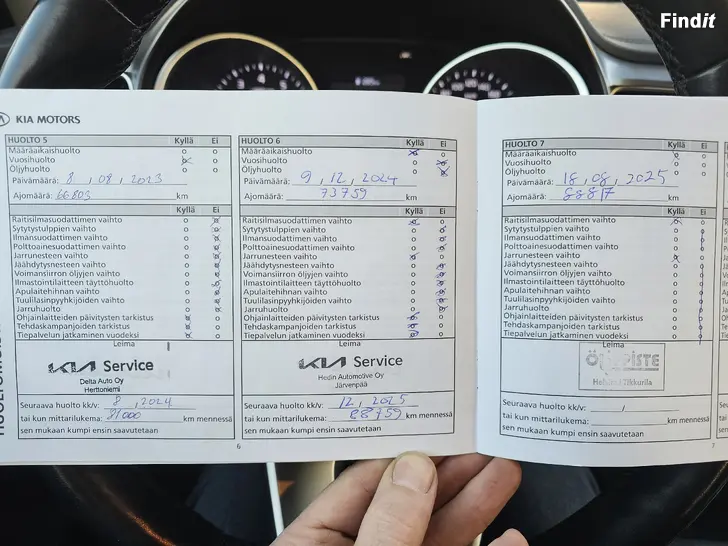 Findit
KIA MOTORS
HUOLTO 5 Kyllä Ei
Määräaikaishuolto
Vuosihuolto
Öljyhuolto
Päivämäärä: 8 , 08 , 2023
Ajomäärä: 66.803 km
Kyllä Ei
Raitisilmasuodattimen vaihto
Sytytystulppien vaihto
Ilmansuodattimen vaihto
Polttoainesuodattimen vaihto
Jarrunesteen vaihto
Jäähdytysnesteen vaihto
Voimansiirron öljyjen vaihto
Ilmastointilaitteen täyttöhuolto
Apulaitehihnan vaihto
Tuulilasinpyyhkijöiden vaihto
Jarruhuolto
Ohjainlaitteiden päivitysten tarkistus
Tehdaskampanjoiden tarkistus
Tiepalvelun jatkaminen vuodeksi
Leima
KIA Service
Delta Auto Oy
Herttoniemi
Seuraava huolto kk/v: 8 , 2024
tai kun mittarilukema: 81000 km mennessä
sen mukaan kumpi ensin saavutetaan
6
HUOLTO 6 Kyllä Ei
Määräaikaishuolto
Vuosihuolto
Öljyhuolto
Päivämäärä: 9 , 12 , 2024
Ajomäärä: 73759 km
Kyllä Ei
Raitisilmasuodattimen vaihto
Sytytystulppien vaihto
Ilmansuodattimen vaihto
Polttoainesuodattimen vaihto
Jarrunesteen vaihto
Jäähdytysnesteen vaihto
Voimansiirron öljyjen vaihto
Ilmastointilaitteen täyttöhuolto
Apulaitehihnan vaihto
Tuulilasinpyyhkijöiden vaihto
Jarruhuolto
Ohjainlaitteiden päivitysten tarkistus
Tehdaskampanjoiden tarkistus
Tiepalvelun jatkaminen vuodeksi
Leima
KIA Service
Hedin Automotive Oy
Järvenpää
Seuraava huolto kk/v: 12 , 2025
tai kun mittarilukema: 88759 km mennessä
sen mukaan kumpi ensin saavutetaan
HUOLTO 7 Kyllä Ei
Määräaikaishuolto
Vuosihuolto
Öljyhuolto
Päivämäärä: 18 , 08 , 2025
Ajomäärä: 88817 km
Kyllä Ei
Raitisilmasuodattimen vaihto
Sytytystulppien vaihto
Ilmansuodattimen vaihto
Polttoainesuodattimen vaihto
Jarrunesteen vaihto
Jäähdytysnesteen vaihto
Voimansiirron öljyjen vaihto
Ilmastointilaitteen täyttöhuolto
Apulaitehihnan vaihto
Tuulilasinpyyhkijöiden vaihto
Jarruhuolto
Ohjainlaitteiden päivitysten tarkistus
Tehdaskampanjoiden tarkistus
Tiepalvelun jatkaminen vuodeksi
Leima
Seuraava huolto kk/v: ,
tai kun mittarilukema: km mennessä
sen mukaan kumpi ensin saavutetaan
7